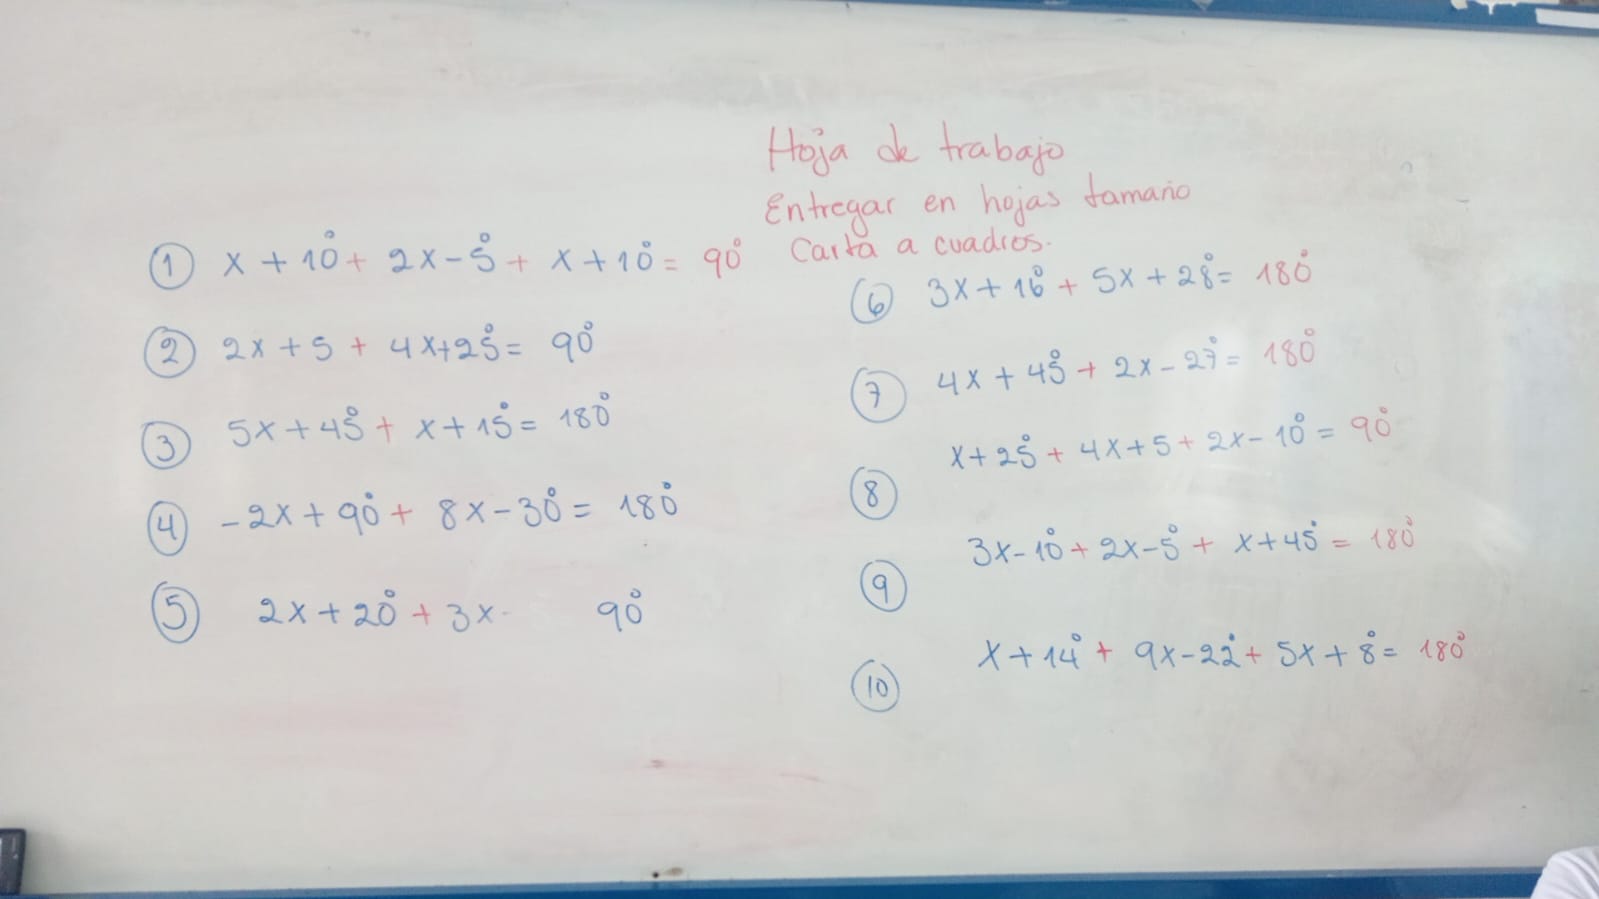 Hoja de trabajo
Entregar en hojas tamaño
Carta a cuadros.
① x + 10° + 2x - 5° + x + 10° = 90°
② 2x + 5 + 4x + 25° = 90°
③ 5x + 45° + x + 15° = 180°
④ -2x + 90° + 8x - 30° = 180°
⑤ 2x + 20° + 3x - 90°
⑥ 3x + 16° + 5x + 28° = 180°
⑦ 4x + 45° + 2x - 27° = 180°
⑧ x + 25° + 4x + 5 + 2x - 10° = 90°
⑨ 3x - 10° + 2x - 5° + x + 45° = 180°
⑩ x + 14° + 9x - 22° + 5x + 8° = 180°